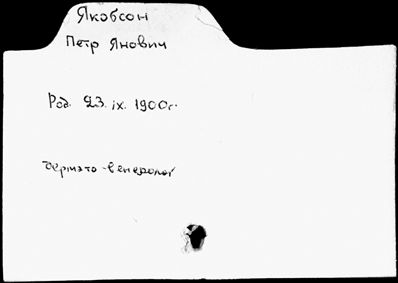 Якобсон
Петр Янович
Род. 23. ix. 1900г.
Дермато-венеролог